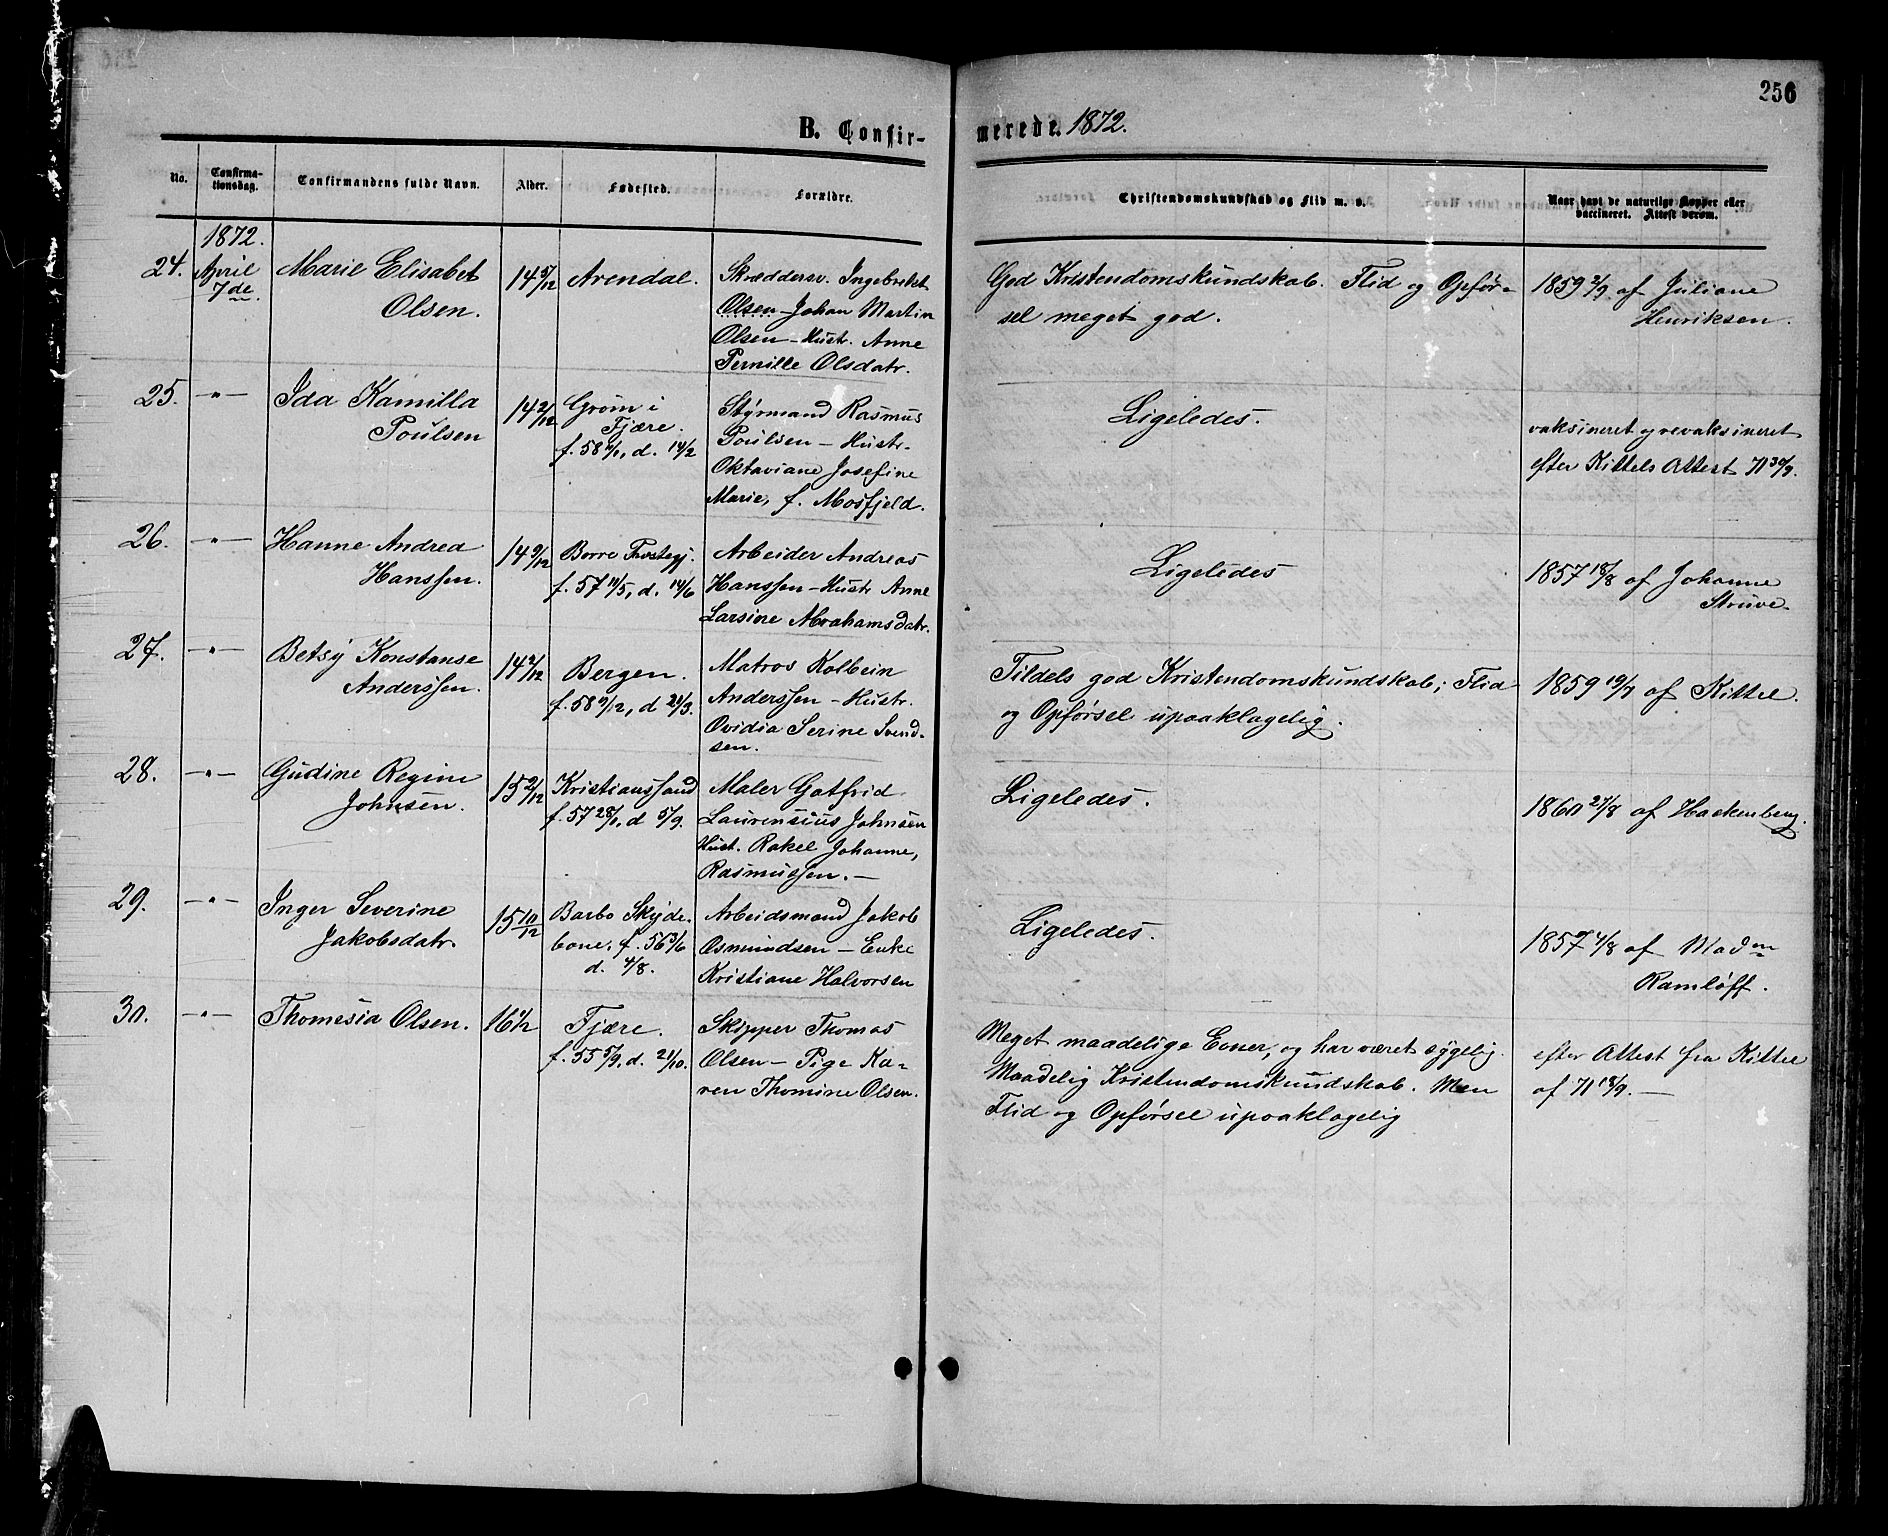 256
B. Confirmerede. 1872.
No.
Confirmationsdag.
Confirmandens fulde Navn.
Alder.
Fødested.
Forældre.
Christendomskundskab og Flid m. v.
Naar havt de naturlige Kopper eller
vaccineret. Attest derom.
1872.
24.
April
7de
Marie Elisabet
Olsen.
14 5/12
Arendal.
Skræddersv. Ingebrekt
Olsen - Johan Martin
Olsen - Hustr. Anne
Pernille Olsdatr.
God Kristendomskundskab. Flid og Opfør-
sel meget god.
1859 2/9 af Juliane
Henriksen.
25.
-"-
Ida Kamilla
Poulsen
14 2/12
Grøm i
Fjære.
f. 58 , d. 14/2
Styrmand Rasmus
Poulsen - Hustr.
Oktaviane Josefine
Marie, f. Mosfjeld.
Ligeledes.
vaksineret og revaksineret
efter Kittels Attest 71 30/9.
26.
-"-
Hanne Andrea
Hanssen.
14 9/12
Borre
f. 57 11/5, d. 14/6
Arbeider Andreas
Hanssen - Hustr Anne
Larsine Abrahamsdatr.
Ligeledes
1857 18/8 af Johanne
Struve.
27.
-"-
Betsy Konstanse
Anderssen.
14 2/12
Bergen.
f. 58 9/2, d 21/3.
Matros Kolbein
Anderssen - Hustr.
Ovidia Serine Svend-
sen.
Tildels god Kristendomskundskab; Flid
og Opførsel upaaklagelig.
1859 19/7 af Kittel.
28.
-"-
Gudine Regine
Johnsen.
15 2/12
Kristianssand
f. 57 28/1, d 5/9.
Maler Gotfrid
Laurensius Johnsen
Hust. Rakel Johanne,
Rasmussen. -
Ligeledes.
1860 27/8 af Hackenberg.
29.
-"-
Inger Severine
Jakobsdatr.
15 10/12
Barbo Skyde-
bane, f. 56 3/6
d. 4/8.
Arbeidsmand Jakob
Osmundsen - Enke
Kristiane Halvorsen
Ligeledes.
1857 4/8 af Madm
Ramløff.
30.
-"-
Thomesia Olsen.
16 1/2
Fjære.
f. 55 5/9, d. 21/10.
Skipper Thomas
Olsen - Pige Ka-
ren Thomine Olsen.
Meget maadelige Evner, og har været sygelig.
Maadelig Kristendomskundskab. Men
Flid og Opførsel upaaklagelig
efter Attest fra Kittel
af 71 18/9. -